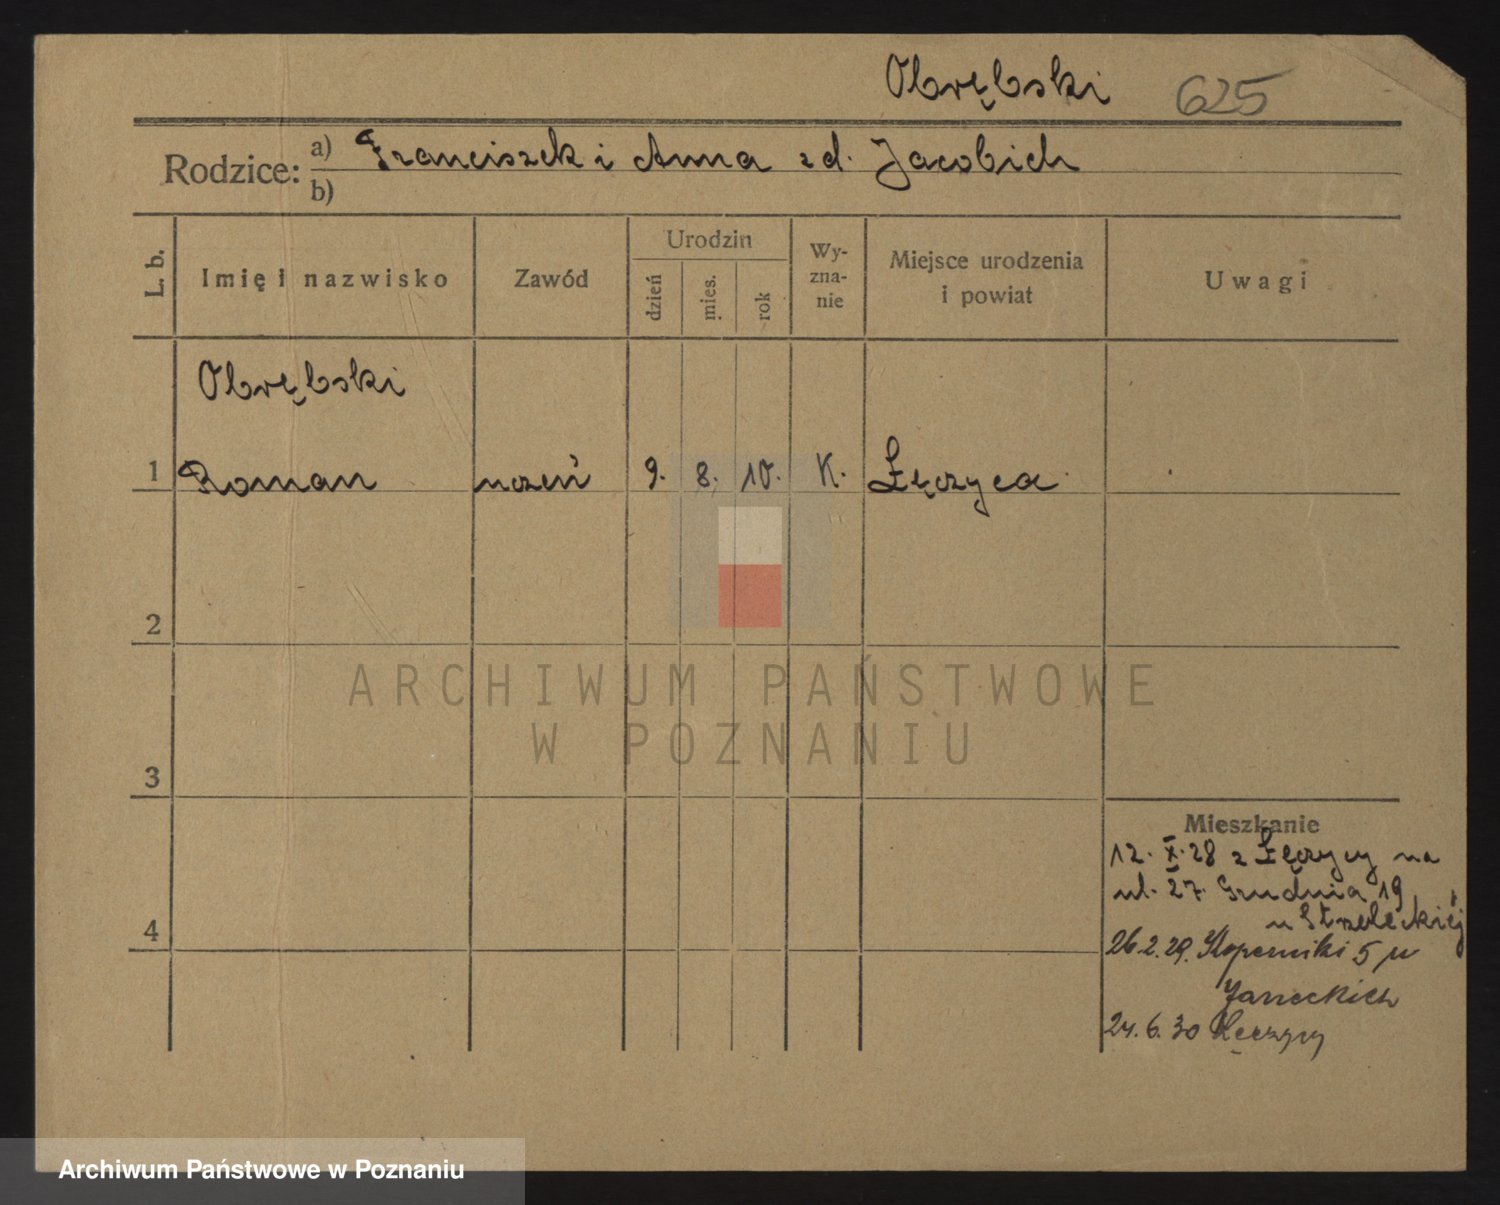 Obrębski 625
Rodzice: a) Franciszek i Anna z d. Jacobich
b)
L. b. Imię i nazwisko Zawód Urodzin dzień mies. rok Wy-zna-nie Miejsce urodzenia i powiat Uwagi
Obrębski
1 Roman uczeń 9. 8. 10. K. Łęczyca
2
ARCHIWUM PAŃSTWOWE
W POZNANIU
3
Mieszkanie
12. X. 28 z Łęczycy na
ul. 27. Grudnia 19
u Strzeleckiej
4
26.2.29. Kopernika 5 u
Janeckich
24.6.30 Łęczycy
Archiwum Państwowe w Poznaniu